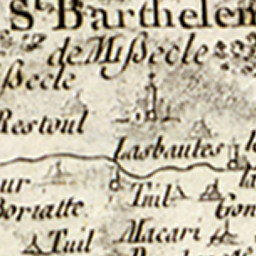 St Barthelem
de Missecle
ssecle
Restoul
Lasbautes
ur
Boriatte
Tuil
Gon
Tuil
Macari